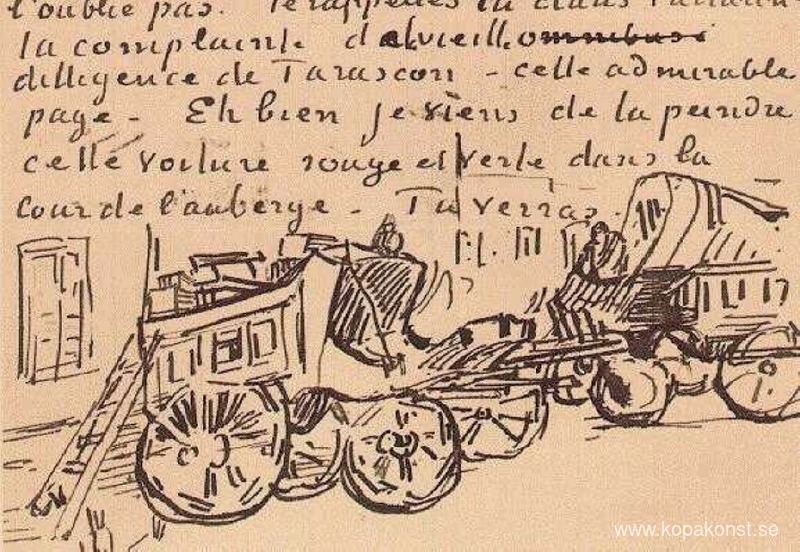 l'oublie pas. Te rappelles tu dans Tartarin
la complainte de la vieille omnibus
dilligence de Tarascon - cette admirable
page - Eh bien je viens de la peindre
cette voiture rouge et verte dans la
cour de l'auberge - Tu verras.
www.kopakonst.se